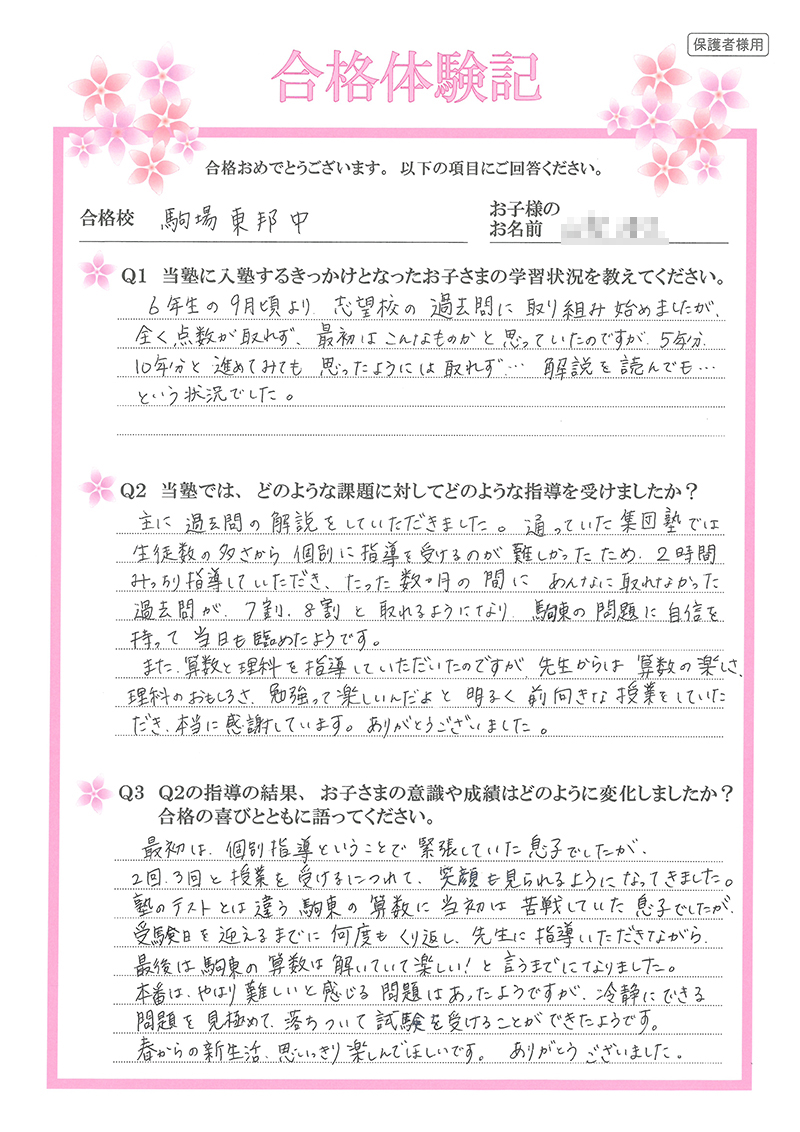 保護者様用
合格体験記
合格おめでとうございます。以下の項目にご回答ください。
合格校 駒場東邦中
お子様の
お名前
Q1 当塾に入塾するきっかけとなったお子さまの学習状況を教えてください。
6年生の9月頃より、志望校の過去問に取り組み始めましたが、
全く点数が取れず、最初はこんなものかと思っていたのですが、5年分、
10年分と進めてみても思ったようには取れず… 解説を読んでも…
という状況でした。
Q2 当塾では、どのような課題に対してどのような指導を受けましたか？
主に過去問の解説をしていただきました。通っていた集団塾では
生徒数の多さから個別に指導を受けるのが難しかったため、2時間
みっちり指導していただき、たった数ヶ月の間にあんなに取れなかった
過去問が、7割、8割と取れるようになり、駒東の問題に自信を
持って当日も臨めたようです。
また、算数と理科を指導していただいたのですが、先生からは算数の楽しさ、
理科のおもしろさ、勉強って楽しいんだよと明るく前向きな授業をしていた
だき、本当に感謝しています。ありがとうございました。
Q3 Q2の指導の結果、お子さまの意識や成績はどのように変化しましたか？
合格の喜びとともに語ってください。
最初は、個別指導ということで緊張していた息子でしたが、
2回、3回と授業を受けるにつれて、笑顔も見られるようになってきました。
塾のテストとは違う駒東の算数に当初は苦戦していた息子でしたが、
受験日を迎えるまでに何度もくり返し、先生に指導いただきながら、
最後は駒東の算数は解いていて楽しい！と言うまでになりました。
本番は、やはり難しいと感じる問題はあったようですが、冷静にできる
問題を見極めて、落ちついて試験を受けることができたようです。
春からの新生活、思いっきり楽しんでほしいです。 ありがとうございました。